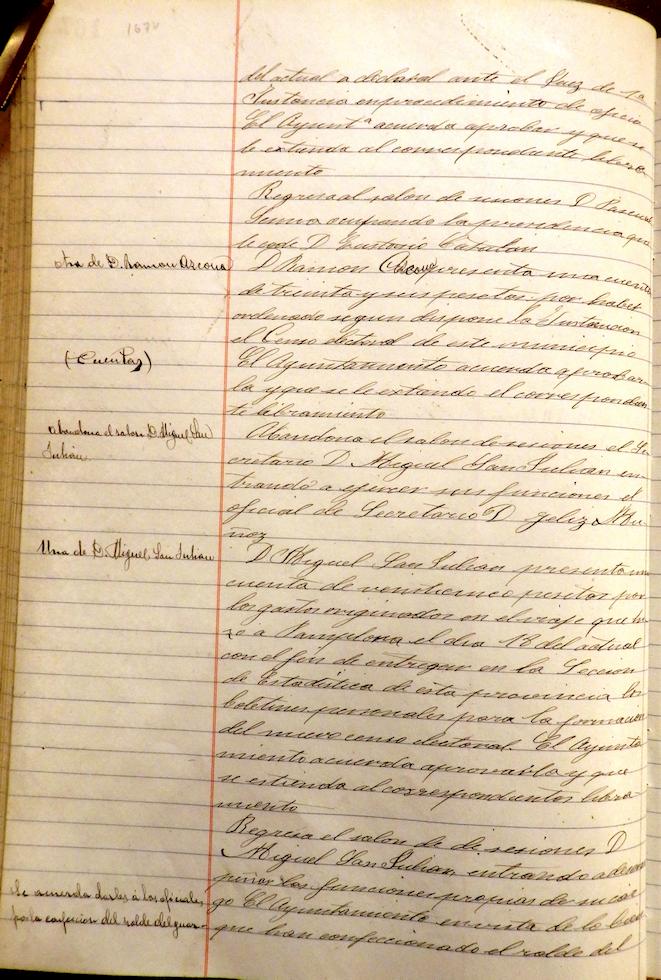 del actual a declarar ante el Juez de 1ª
Instancia en procedimiento de oficio
El Ayuntº acuerda aprobar y que se
le extienda el correspondiente libra
miento
Regresa al salon de sesiones D Pascual
ocupando la presidencia que
le cede D Eustasio Catalan
otra de D. Ramon Azcona
D Ramon Azcona presenta una cuenta
de treinta y seis pesetas por haber
ordenado segun dispone la Instruccion
el Censo electoral de este municipio
(Cuentas)
El Ayuntamiento acuerda aprobar
la y que se le extienda el correspondien
te libramiento
Abandona el salon D. Miguel San
Julian
Abandona el salon de sesiones el Se
cretario D Miguel San Julian en
trando a ejercer sus funciones el
oficial de Secretario D Felix Mu
ñoz
Una de D. Miguel San Julian
D Miguel San Julian presenta una
cuenta de veinticinco pesetas por
los gastos originados en el viaje que hi
zo a Pamplona el dia 18 del actual
con el fin de entregar en la Seccion
de Estadistica de esta provincia los
boletines personales para la formacion
del nuevo censo electoral. El Ayunta
miento acuerda aprovarla y que
se estienda el correspondientes libra
miento
Regresa el salon de de sesiones D
Miguel San Julian entrando a desem
peñar las funciones propias de su car
Se acuerda darles á los oficiales
por la confeccion del rolde del guar-
go El Ayuntamiento en vista de lo bien
que han confeccionado el rolde del